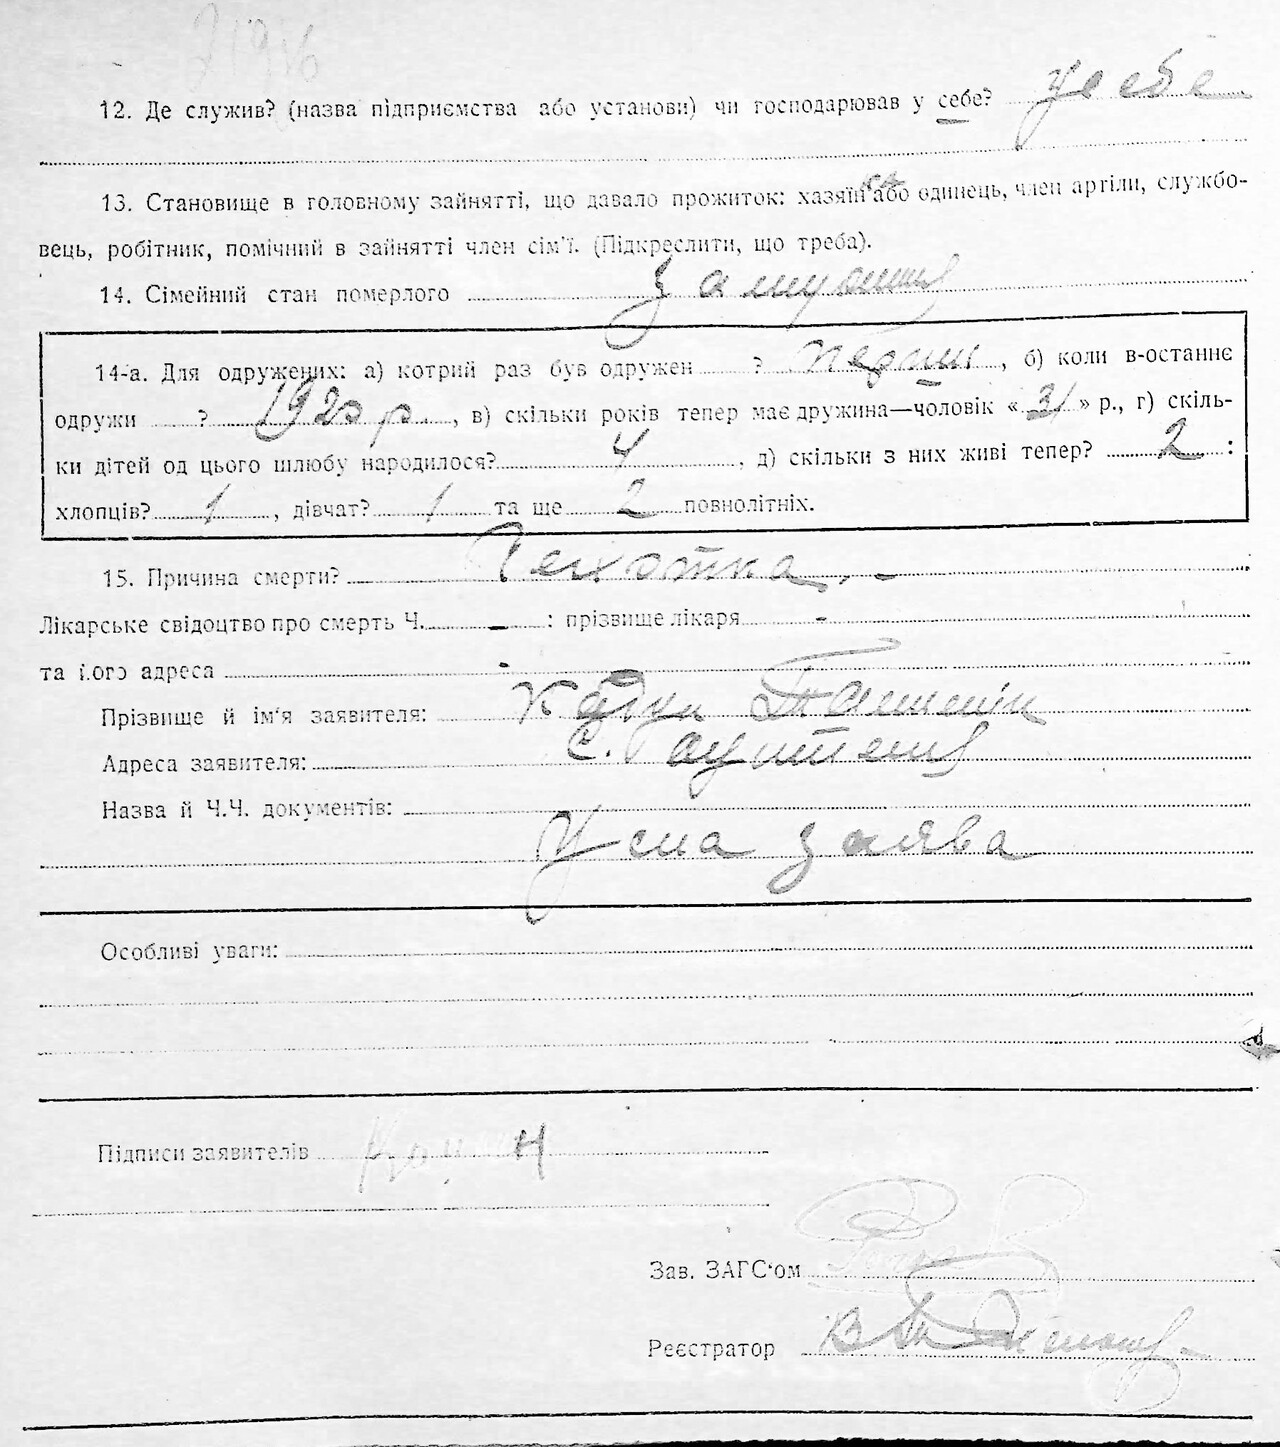 21916
12. Де служив? (назва підприємства або установи) чи господарював у себе? У себе
13. Становище в головному зайнятті, що давало прожиток: хазяїн ка або одинець, член артіли, службо-
вець, робітник, помічний в зайнятті член сім'ї. (Підкреслити, що треба).
14. Сімейний стан померлого замужний
14-а. Для одружених: а) котрий раз був одружен ? перший, б) коли в-останнє
одружи ? 1920 р., в) скільки років тепер має дружина—чоловік «31» р., г) скіль-
ки дітей од цього шлюбу народилося? 4, д) скільки з них живі тепер? 2:
хлопців? 1, дівчат? 1 та ще 2 повнолітніх.
15. Причина смерти? Чехотка. -
Лікарське свідоцтво про смерть Ч. - : прізвище лікаря -
та його адреса -
Прізвище й ім'я заявителя:
Адреса заявителя: с.
Назва й Ч.Ч. документів:
Усна заява
Особливі уваги:
Підписи заявителів
Зав. ЗАГС'ом
Реєстратор